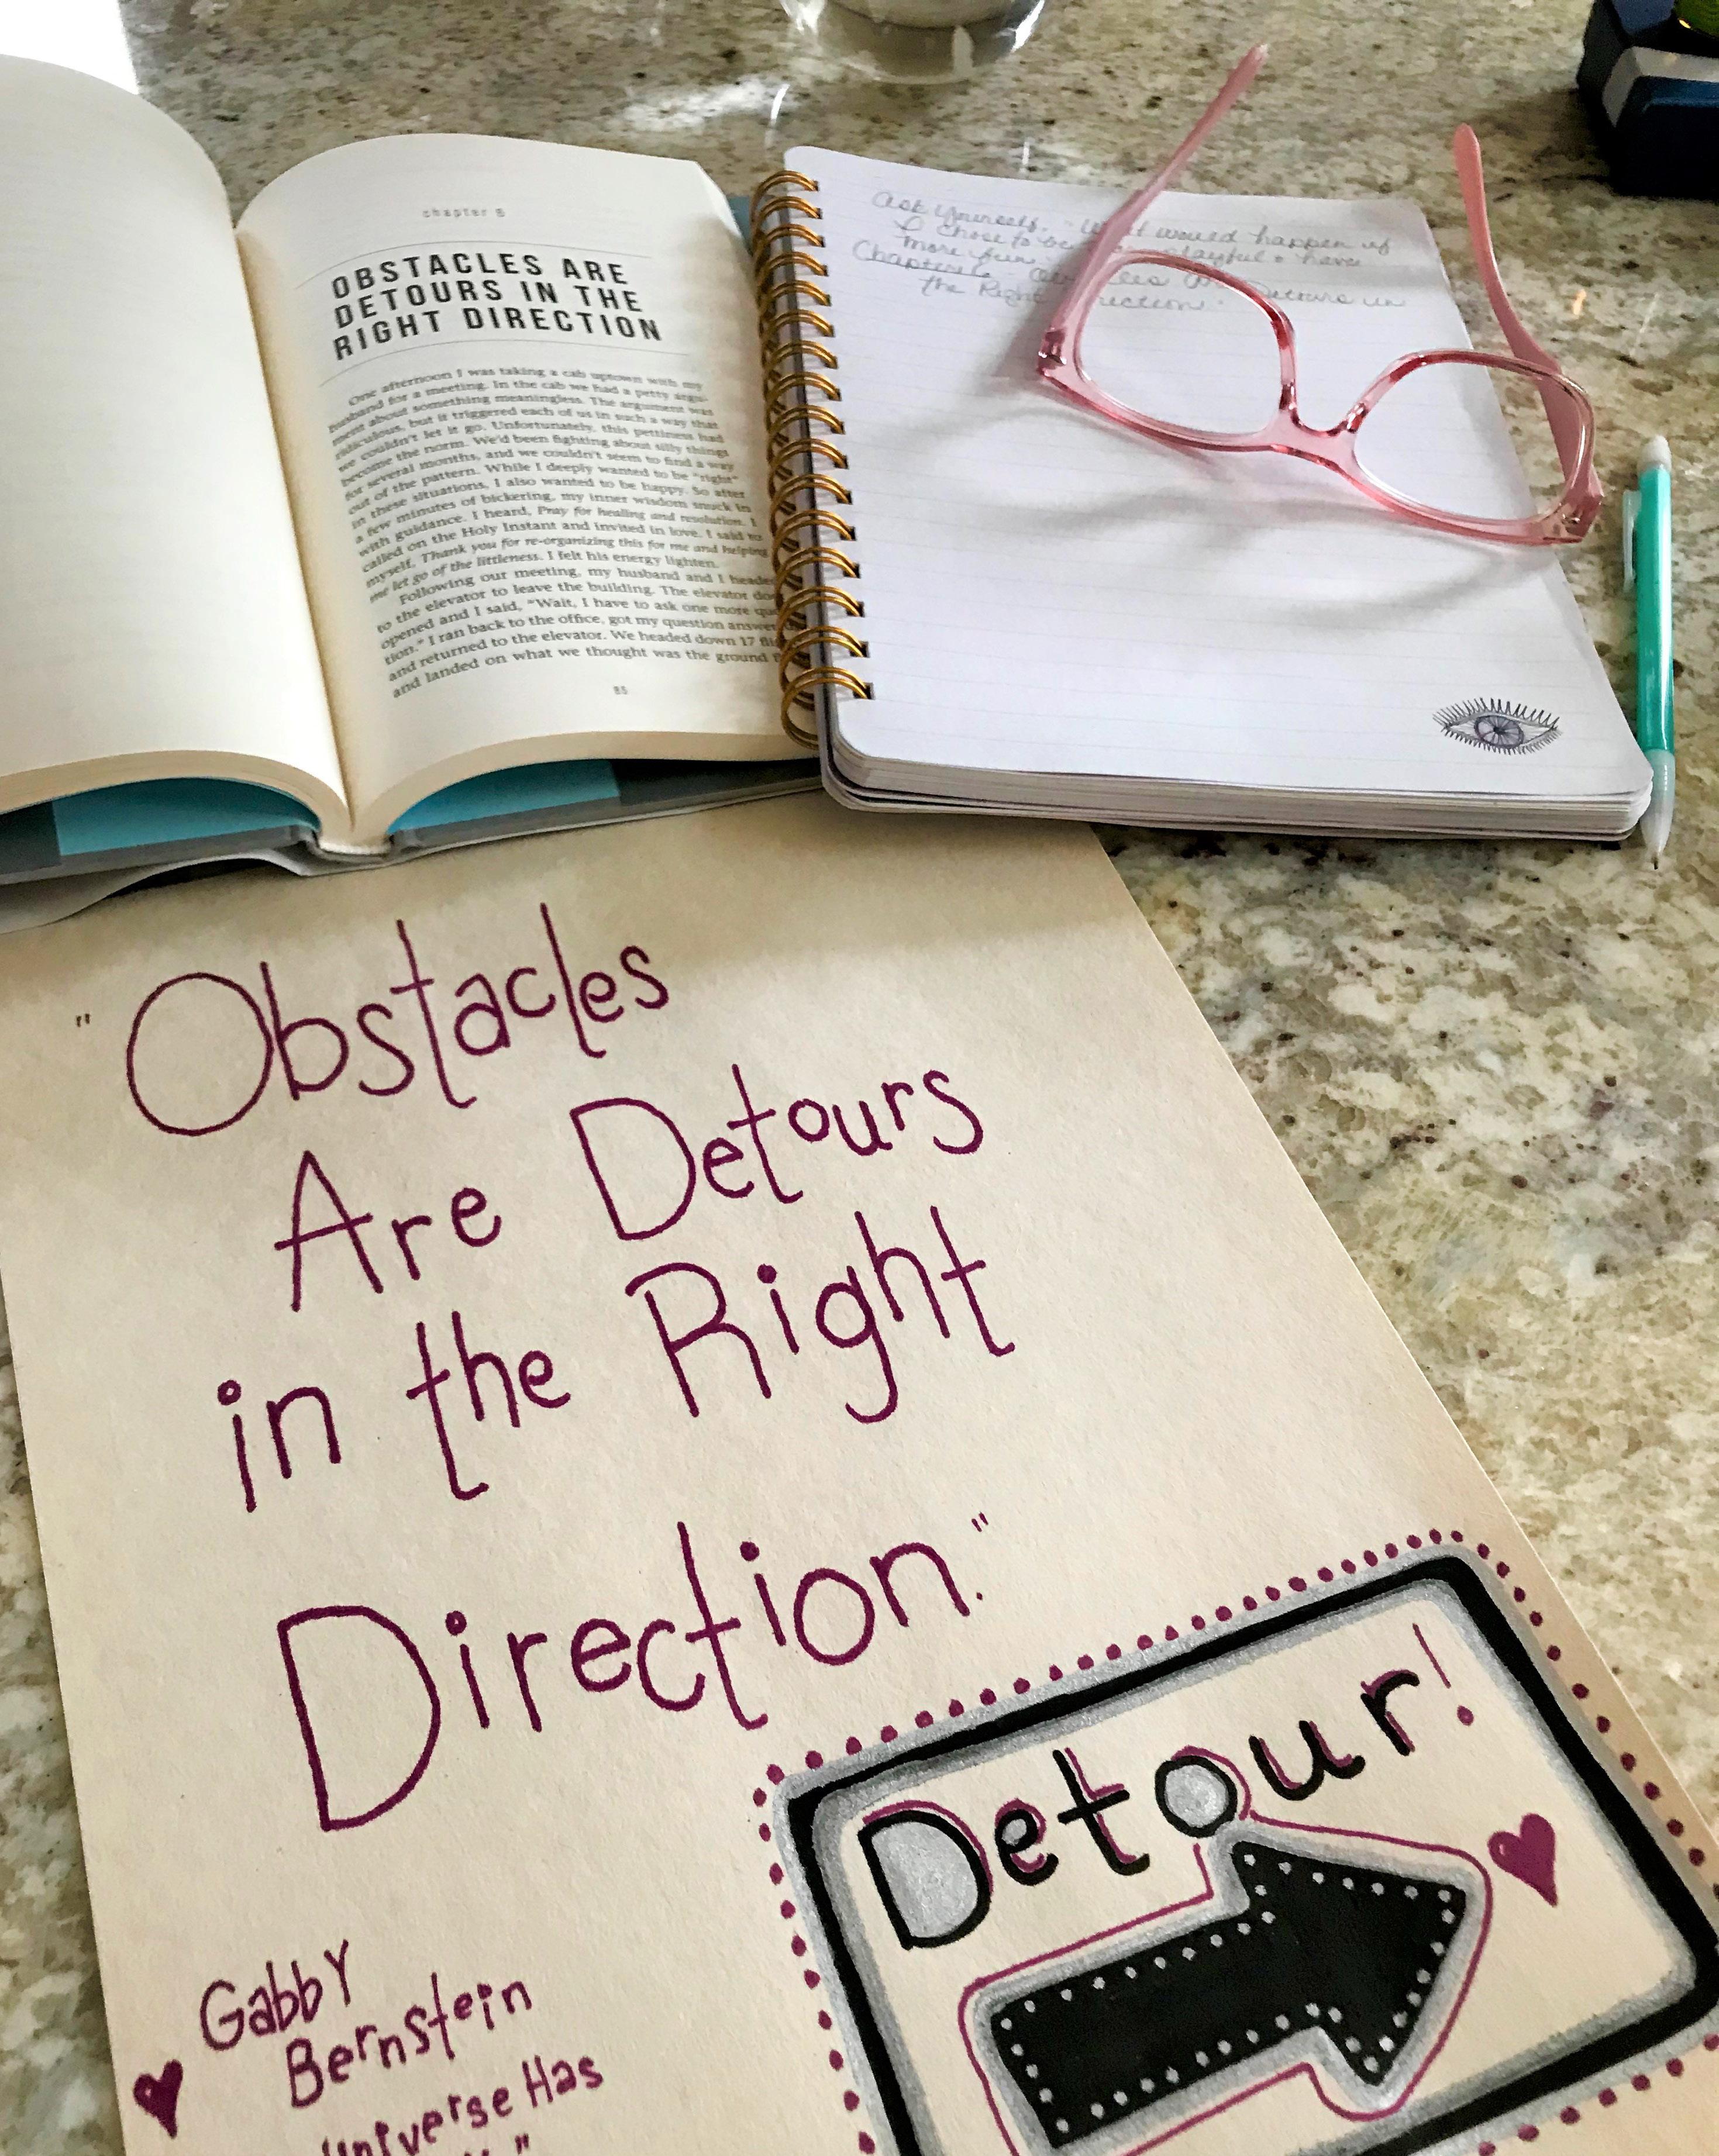 chapter 6
OBSTACLES ARE
DETOURS IN THE
RIGHT DIRECTION
One afternoon I was taking a cab uptown with my
husband for a meeting. In the cab we had a petty argu-
ment about something meaningless. The argument was
ridiculous, but it triggered each of us in such a way that
we couldn't let it go. Unfortunately, this pettiness had
become the norm. We'd been fighting about silly things
for several months, and we couldn't seem to find a way
out of the pattern. While I deeply wanted to be "right"
in these situations, I also wanted to be happy. So after
a few minutes of bickering, my inner wisdom snuck in
with guidance. I heard, Pray for healing and resolution. I
called on the Holy Instant and invited in love. I said to
myself, Thank you for re-organizing this for me and helping
me let go of the littleness. I felt his energy lighten.
Following our meeting, my husband and I heade
to the elevator to leave the building. The elevator do
opened and I said, "Wait, I have to ask one more que
tion." I ran back to the office, got my question answer
and returned to the elevator. We headed down 17 fli
and landed on what we thought was the ground
85
Ask yourself. - What would happen if
I chose to be playful & have
more fun
Chapter 6 - Detours in
the Right Direction.
"Obstacles
Are Detours
in the Right
Direction."
Detour!
Gabby
Bernstein
Universe Has
"